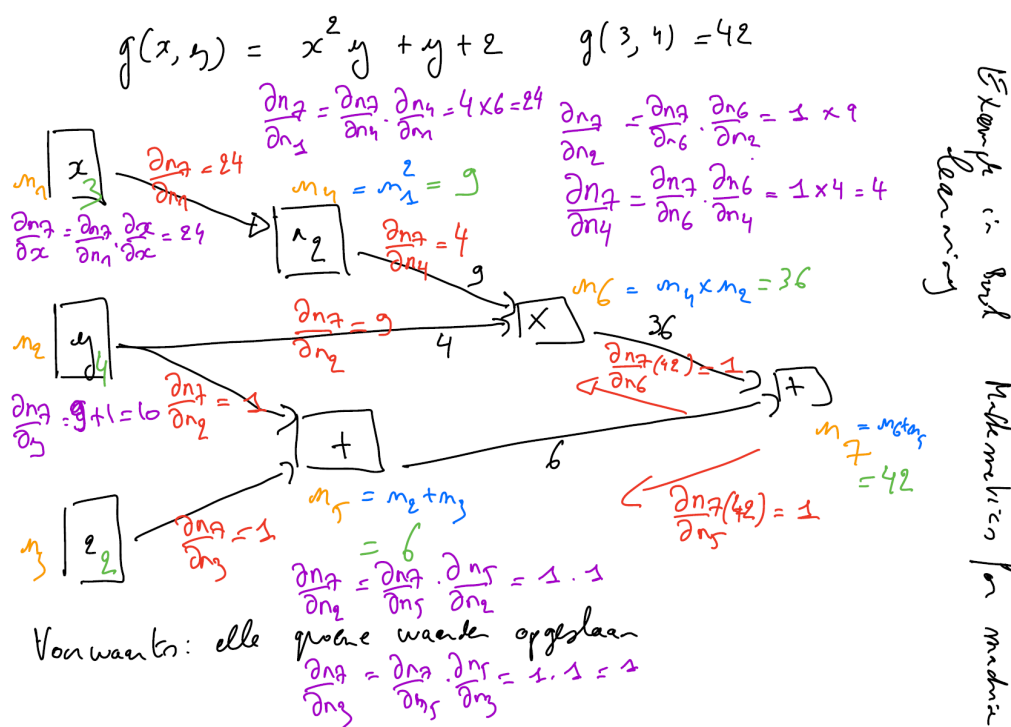 g(x,y) = x² y + y + 2
g(3,4) = 42
∂n7/∂n1 = ∂n7/∂n4 · ∂n4/∂n1 = 4 x 6 = 24
∂n7/∂n2 = ∂n7/∂n6 · ∂n6/∂n2 = 1 x 9
∂n7/∂n4 = ∂n7/∂n6 · ∂n6/∂n4 = 1 x 4 = 4
n1
x
3
∂n7/∂n1 = 24
n4 = n1² = 9
∂n7/∂x = ∂n7/∂n1 · ∂x/∂x = 24
∂n7/∂n4 = 4
9
n6 = n4 x n2 = 36
n2
y
4
∂n7/∂n2 = 9
4
x
36
∂n7(42)/∂n6 = 1
+
∂n7/∂y = 9+1 = 10
∂n7/∂n2 = 1
+
6
n7 = n6+n5
= 42
n3
2
2
∂n7/∂n3 = 1
n5 = n2 + n3
= 6
∂n7(42)/∂n5 = 1
∂n7/∂n2 = ∂n7/∂n5 · ∂n5/∂n2 = 1 . 1
Voorwaarts: alle groene waarden opgeslaan
∂n7/∂n3 = ∂n7/∂n5 · ∂n5/∂n3 = 1 . 1 = 1
Example in Book Mathematics for machine
learning